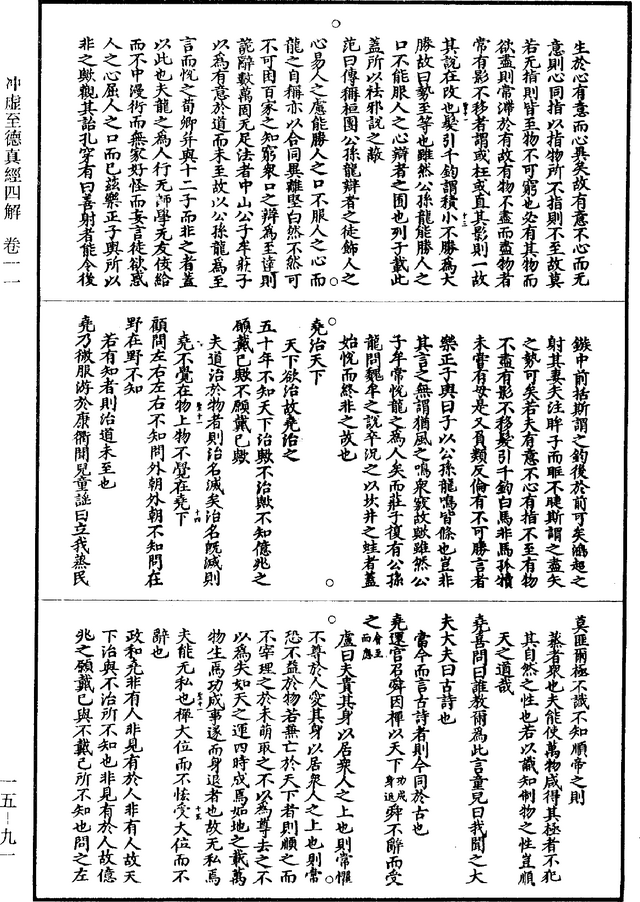 冲虛至德真經四解 卷一二
生於心有意而心異矣故有意不心而无
意則心同指以指物所不指則不至故莫
若无指則皆至物不可窮也必有其物而
欲盡則常滯於有故有物不盡而盡物者
常有影不移者謂或枉或直其影則一故
其說在改也髮引千鈞謂積小不勝為大
勝故曰勢至等也雖然公孫龍能勝人之
口不能服人之心辯者之囿也列子載此
蓋所以祛邪說之蔽
范曰傳稱桓團公孫龍辯者之徒飾人之
心易人之慮能勝人之口不服人之心而
龍之自稱亦以合同異離堅白然不然可
不可困百家之知窮衆口之辨為至達則
詭辭數萬固无足法者中山公子牟莊子
以為有意於道而未至故以公孫龍為至
言而悅之荀卿并與十二子而非之者蓋
以此也夫龍之為人行无師學无友佞給
而不中漫衍而無家好怪而妄言徒欲惑
人之心屈人之口而已茲樂正子輿所以
非之歟觀其詒孔穿有曰善射者能令後
鏃中前括斯謂之鈞後於前可矣鴻超之
射其妻矢注眸子而眶不睫斯謂之盡矢
之勢可矣若夫有意不心有指不至有物
不盡有影不移髮引千鈞白馬非馬孤犢
未嘗有母是又負類反倫有不可勝言者
樂正子輿曰子以公孫龍鳴皆條也豈非
其言之無謂猶風之鳴衆竅故歟雖然公
子牟常悅龍之為人矣而莊子復有公孫
龍問魏牟之說卒況之以坎井之蛙者蓋
始悅而終非之故也
堯治天下
天下欲治故堯治之
五十年不知天下治歟不治歟不知億兆之
願戴己歟不願戴己歟
夫道治於物者則治名滅矣治名旣滅則
堯不覺在物上物不覺在堯下
顧問左右左右不知問外朝外朝不知問在
野在野不知
若有知者則治道未至也
堯乃微服游於康衢聞兒童謠曰立我蒸民
莫匪爾極不識不知順帝之則
蒸者衆也夫能使萬物咸得其極者不犯
其自然之性也若以識知制物之性豈順
天之道哉
堯喜問曰誰教爾為此言童兒曰我聞之大
夫大夫曰古詩也
當今而言古詩者則今同於古也
堯還宮召舜因禪以天下功成身退舜不辭而受
之會至而應
盧曰夫貴其身以居衆人之上也則常懼
不尊於人愛其身以居衆人之上也則常
恐不益於物若兼亡於天下者則順之而
不宰理之於未萌取之不以為尊去之不
以為失如天之運四時成焉如地之載萬
物生焉功成事遂而身退者也故无私焉
夫能无私也禪大位而不恡受大位而不
辭也
政和堯非有人非見有於人非有人故天
下治與不治所不知也非見有於人故億
兆之願戴己與不戴己所不知也問之左
一五—九一